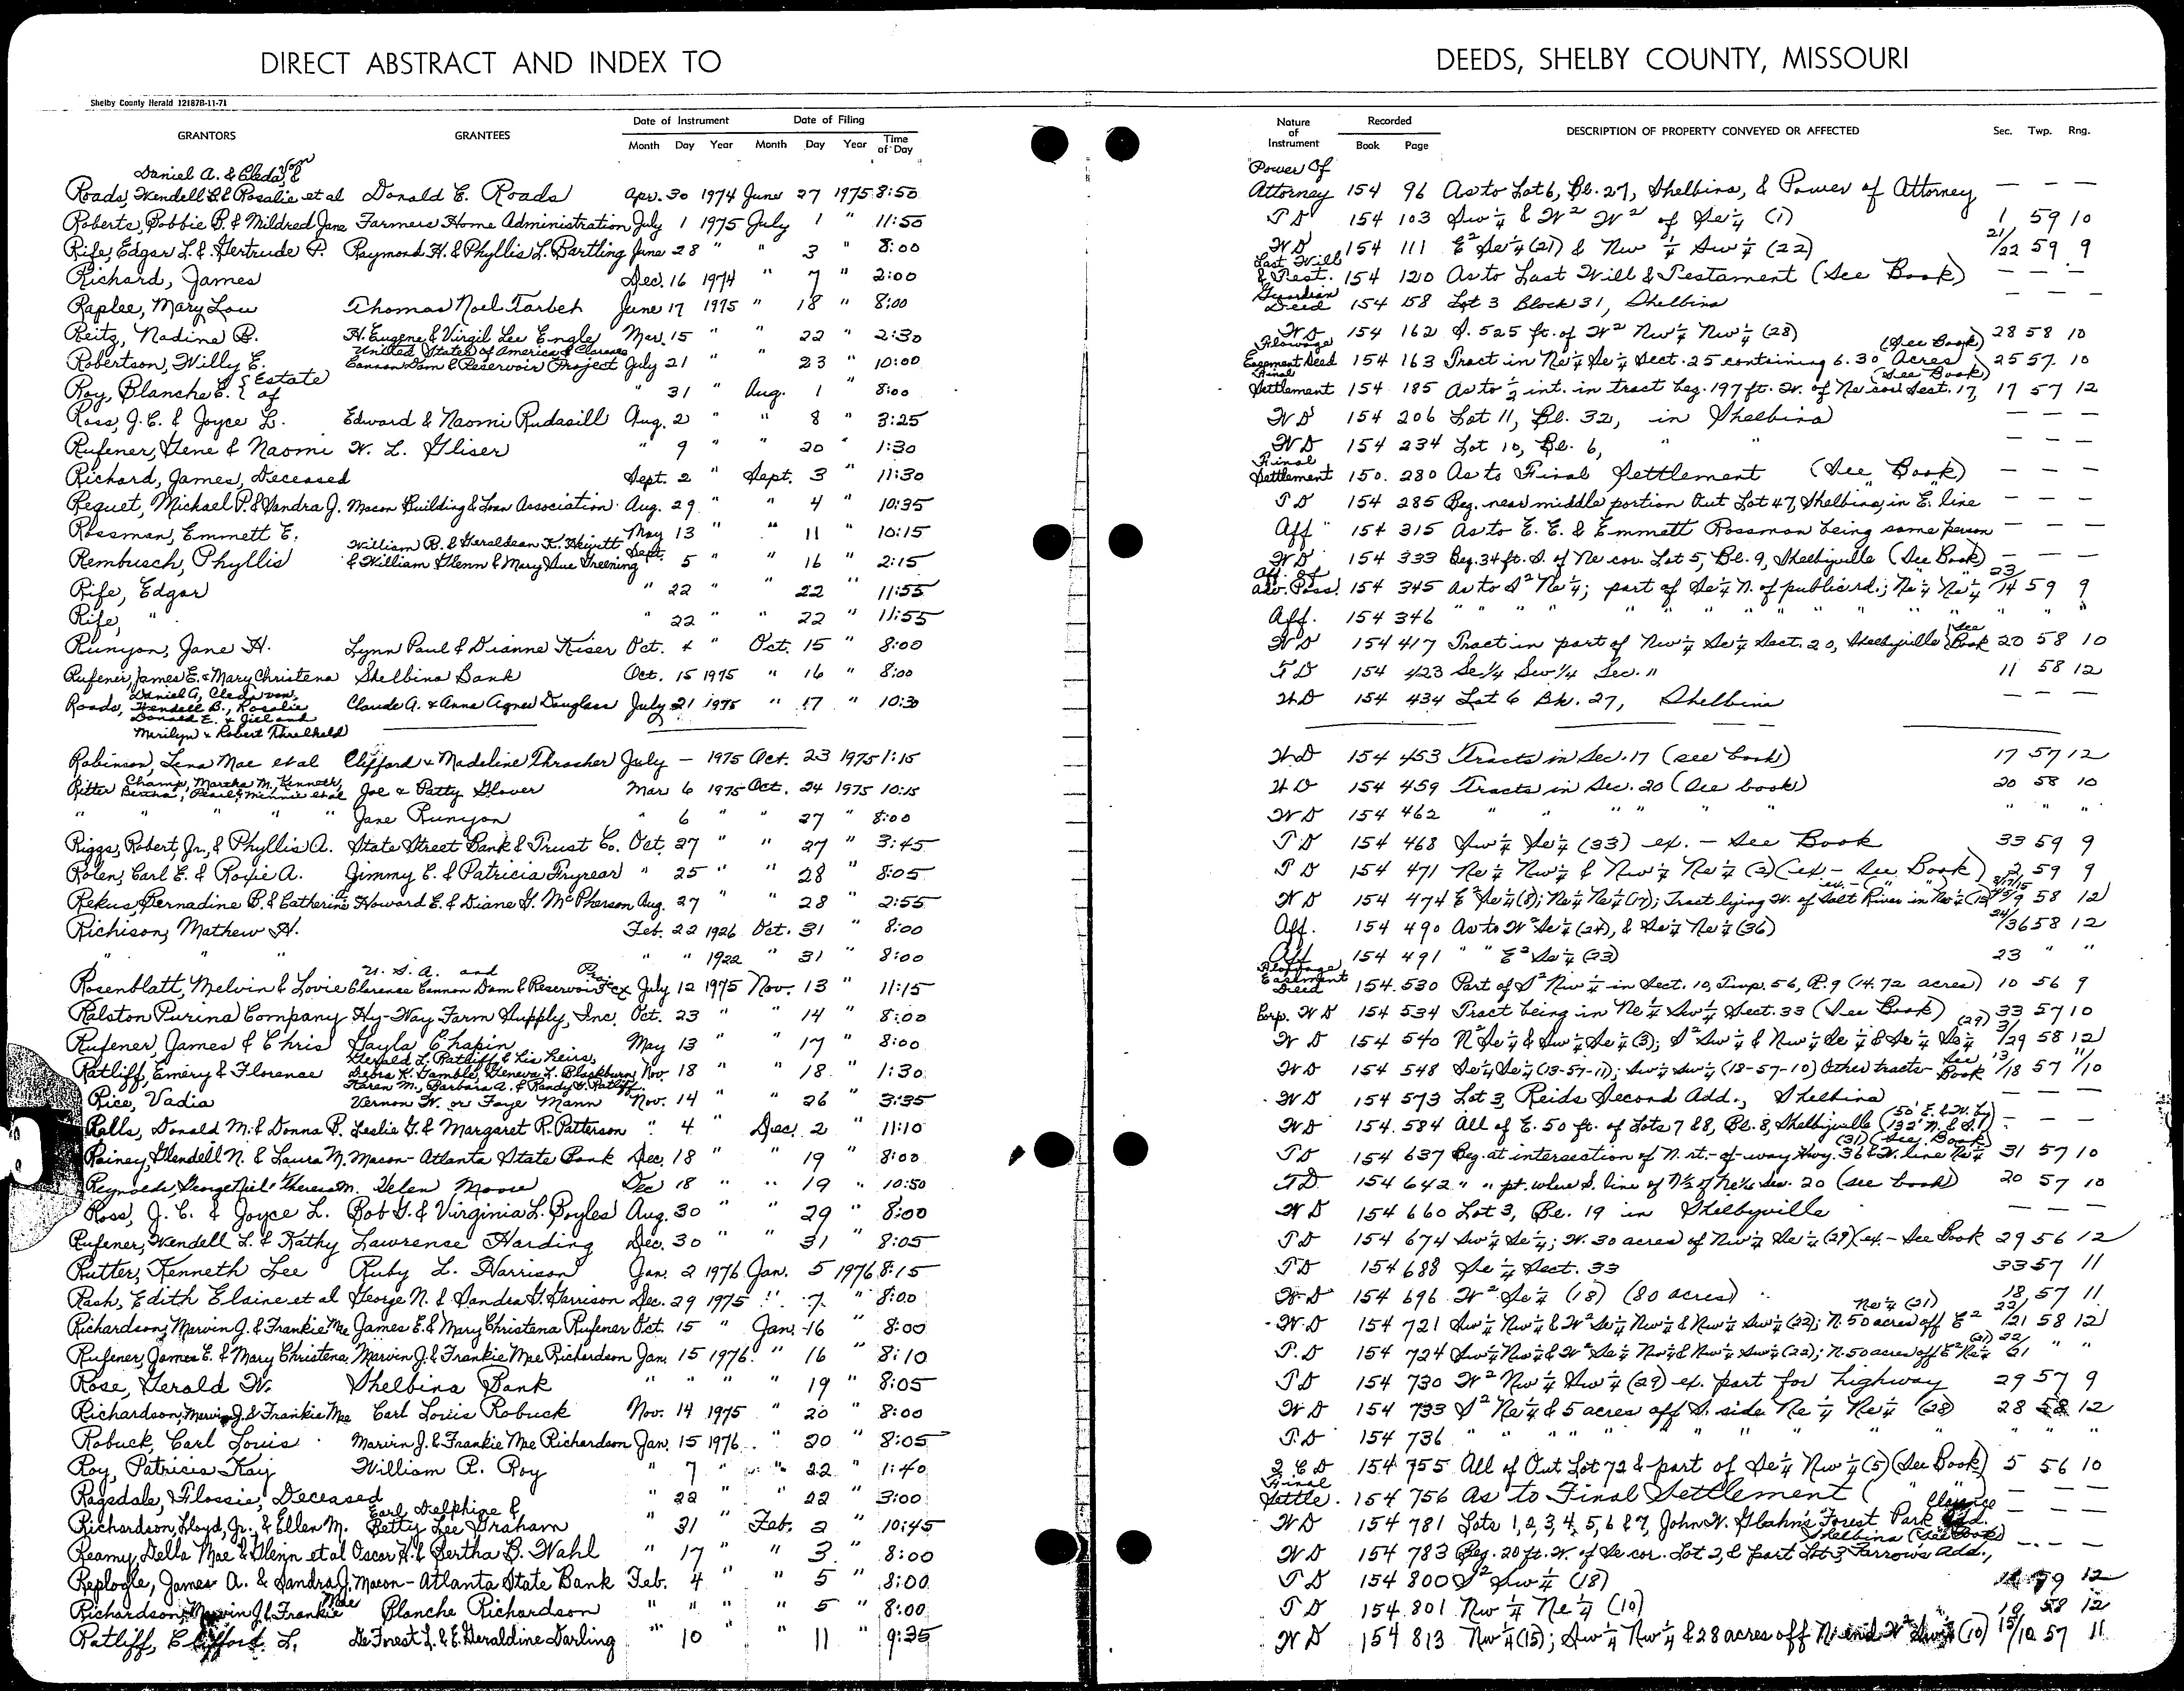 DIRECT ABSTRACT AND INDEX TO DEEDS, SHELBY COUNTY, MISSOURI
Shelby County Herald 12187B-11-71
GRANTORS GRANTEES Date of Instrument Month Day Year Date of Filing Month Day Year Time of Day Nature of Instrument Recorded Book Page DESCRIPTION OF PROPERTY CONVEYED OR AFFECTED Sec. Twp. Rng.
Daniel A. & Cleda Power Of
Roads, Wendell B. & Rosalie et al Donald E. Roads Apr. 30 1974 June 27 1975 8:50 Attorney 154 96 As to Lot 6, Bl. 27, Shelbina, & Power of Attorney — — —
Roberts, Bobbie B. & Mildred Jane Farmers Home Administration July 1 1975 July 1 " 11:50 T D 154 103 Sw 1/4 & W² W² of Se 1/4 (1) 1 59 10
Rife, Edgar L. & Gertrude P. Raymond H. & Phyllis L. Bartling June 28 " " 3 " 8:00 W D 154 111 E² Se 1/4 (21) & Nw 1/4 Sw 1/4 (22) 21/22 59 9
Richard, James Dec. 16 1974 " 7 " 2:00 Last Will & Test. 154 120 As to Last Will & Testament (See Book) — — —
Raplee, Mary Lou Thomas Noel Tarbet June 17 1975 " 18 " 8:00 Guardian Deed 154 158 Lot 3 Block 31, Shelbina — — —
Reitz, Nadine B. H. Eugene & Virgil Lee Engle Mar. 15 " " 22 " 2:30 W D 154 162 S. 525 ft. of W² Nw 1/4 Nw 1/4 (28) 28 58 10
Robertson, Willy E. United States of America & Clarence Cannon Dam & Reservoir Project July 21 " " 23 " 10:00 Flowage Easement Deed 154 163 Tract in Ne 1/4 Se 1/4 Sect. 25 containing 6.30 Acres (See Book) 25 57 10
Roy, Blanche E. { Estate of " 31 " Aug. 1 " 8:00 Final Settlement 154 185 As to 1/2 int. in tract beg. 197 ft. W. of Ne cor Sect. 17, (See Book) 17 57 12
Ross, J. C. & Joyce L. Edward & Naomi Rudasill Aug. 2 " " 8 " 3:25 W D 154 206 Lot 11, Bl. 32, in Shelbina — — —
Rufener, Gene & Naomi W. L. Gliser " 9 " " 20 " 1:30 W D 154 234 Lot 10, Bl. 6, " " — — —
Richard, James, Deceased Sept. 2 " Sept. 3 " 11:30 Final Settlement 150. 280 As to Final Settlement (See Book) — — —
Requet, Michael P. & Sandra J. Macon Building & Loan Association Aug. 29 " " 4 " 10:35 T D 154 285 Beg. near middle portion Out Lot 47, Shelbina, in E. line — — —
Rossman, Emmett E. May 13 " " 11 " 10:15 Aff " 154 315 As to E. E. & Emmett Rossman being same person — — —
Rembusch, Phyllis William B. & Geraldean K. Hewitt & William Glenn & Mary Sue Greening Sept. 5 " " 16 " 2:15 W D 154 333 Beg. 34 ft. S. of Ne cor. Lot 5, Bl. 9, Shelbyville (See Book) — — —
Rife, Edgar " 22 " " 22 " 11:55 Aff. of Adv. Poss. 154 345 As to S² Ne 1/4; part of Se 1/4 N. of public rd.; Ne 1/4 Ne 1/4 23/14 59 9
Rife, " " 22 " " 22 " 11:55 Aff. 154 346 " " " " " " " " " " " "
Runyon, Jane H. Lynn Paul & Dianne Kiser Oct. 4 " Oct. 15 " 8:00 W D 154 417 Tract in part of Nw 1/4 Se 1/4 Sect. 20, Shelbyville (See Book 20 58 10
Rufener, James E. & Mary Christena Shelbina Bank Oct. 15 1975 " 16 " 8:00 T D 154 423 Se 1/4 Sw 1/4 Sec. 11 11 58 12
Roads, Daniel A, Cledavon, Wendell B., Rosalie Donald E. & Jill and Marilyn & Robert Threlkeld Claude A. & Anna Agnes Douglass July 21 1975 " 17 " 10:30 W D 154 434 Lot 6 Bk. 27, Shelbina — — —
Robinson, Lena Mae et al Clifford & Madeline Thrasher July — 1975 Oct. 23 1975 1:15 W D 154 453 Tracts in Sec. 17 (see book) 17 57 12
Ritter Champ, Martha M, Kenneth, Bertha, Pearl & Minnie et al Joe & Patty Glover Mar 6 1975 Oct. 24 1975 10:15 W D 154 459 Tracts in Sec. 20 (See book) 20 58 10
" " " " " Jane Runyon " 6 " " 27 " 8:00 W D 154 462 " " " " " " " "
Riggs, Robert, Jr., & Phyllis A. State Street Bank & Trust Co. Oct. 27 " " 27 " 3:45 T D 154 468 Sw 1/4 Se 1/4 (33) ex. — See Book 33 59 9
Rolen, Carl E. & Roxie A. Jimmy E. & Patricia Fryrear " 25 " " 28 " 8:05 T D 154 471 Ne 1/4 Nw 1/4 & Nw 1/4 Ne 1/4 (2) (ex — See Book) 2 59 9
Rekus, Bernadine B. & Catherine Howard E. & Diane G. McPherson Aug. 27 " " 28 " 2:55 W D 154 474 E² Se 1/4 (8); Ne 1/4 Ne 1/4 (17); Tract lying W. of Salt River in 58 12
Richison, Mathew H. Feb. 22 1926 Oct. 31 " 8:00 Aff. 154 490 As to W² Se 1/4 (24), & Se 1/4 Ne 1/4 (36) 24/36 58 12
" " " " " 1922 " 31 " 8:00 Aff 154 491 " " E² Se 1/4 (23) 23 " "
Rosenblatt, Melvin & Lovie U. S. A. and Clarence Cannon Dam & Reservoir July 12 1975 Nov. 13 " 11:15 Flowage Easement Deed 154.530 Part of S² Nw 1/4 in Sect. 10, Twp. 56, R. 9 (14.72 acres) 10 56 9
Ralston Purina Company Hy-Way Farm Supply, Inc. Oct. 23 " " 14 " 8:00 Corp. W D 154 534 Tract being in Ne 1/4 Sw 1/4 Sect. 33 (See Book) 33 57 10
Rufener, James & Chris Gayla Chapin May 13 " " 17 " 8:00 W D 154 540 N² Se 1/4 & Sw 1/4 Se 1/4 (3); S² Sw 1/4 & Nw 1/4 Se 1/4 & Se 1/4 Se 1/4 (29) 3/29 58 12
Ratliff, Emery & Florence Gerald L. Ratliff & his heirs, Debra K. Gamble, Geneva L. Blackburn, Karen M., Barbara A. & Randy G. Ratliff Nov. 18 " " 18 " 1:30 W D 154 548 Se 1/4 Se 1/4 (13-57-11); Sw 1/4 Sw 1/4 (18-57-10) Other tracts — See Book 13/18 57 11/10
Rice, Vadia Vernon W. or Faye Mann Nov. 14 " " 26 " 3:35 W D 154 573 Lot 3, Reids Second Add., Shelbina — — —
Ralls, Donald M. & Donna B. Leslie G. & Margaret R. Patterson " 4 " Dec. 2 " 11:10 W D 154.584 All of E. 50 ft. of Lots 7 & 8, Bl. 8, Shelbyville (50' E. & W. by 132' N. & S.) — — —
Rainey, Glendell N. & Laura M. Macon-Atlanta State Bank Dec. 18 " " 19 " 8:00 T D 154 637 Beg. at intersection of N. rt.-of-way Hwy. 36 & W. line Ne 1/4 (31) (See Book) 31 57 10
Reynolds, George Neil & Theresa M. Helen Moore Dec 18 " " 19 " 10:50 T D 154 642 " " pt. where S. line of N½ of Ne¼ Sec. 20 (see book) 20 57 10
Ross, J. C. & Joyce L. Bob G. & Virginia L. Boyles Aug. 30 " " 29 " 8:00 W D 154 660 Lot 3, Bl. 19 in Shelbyville — — —
Rufener, Wendell L. & Kathy Lawrence Harding Dec. 30 " " 31 " 8:05 T D 154 674 Sw 1/4 Se 1/4; W. 30 acres of Nw 1/4 Se 1/4 (29) (ex. — See Book 29 56 12
Rutter, Kenneth Lee Ruby L. Harrison Jan. 2 1976 Jan. 5 1976 8:15 T D 154 688 Se 1/4 Sect. 33 33 57 11
Rash, Edith Elaine et al George N. & Sandra G. Garrison Dec. 29 1975 " 7 " 8:00 W D 154 696 W² Se 1/4 (18) (80 acres) 18 57 11
Richardson, Marvin J. & Frankie Mae James E. & Mary Christena Rufener Oct. 15 " Jan. 16 " 8:00 W D 154 721 Sw 1/4 Nw 1/4 & W² Se 1/4 Nw 1/4 & Nw 1/4 Sw 1/4 (22); N. 50 acres off E² Ne 1/4 (21) 22/21 58 12
Rufener, James E. & Mary Christena Marvin J. & Frankie Mae Richardson Jan. 15 1976 " 16 " 8:10 T. D 154 724 Sw 1/4 Nw 1/4 & W² Se 1/4 Nw 1/4 & Nw 1/4 Sw 1/4 (22); N. 50 acres off E² Ne 1/4 (21) 22/21 " "
Rose, Gerald W. Shelbina Bank " " " " 19 " 8:05 T D 154 730 W² Nw 1/4 Sw 1/4 (29) ex. part for highway 29 57 9
Richardson, Marvin J. & Frankie Mae Carl Louis Robuck Nov. 14 1975 " 20 " 8:00 W D 154 733 S² Ne 1/4 & 5 acres off S. side Ne 1/4 Ne 1/4 (28) 28 58 12
Robuck, Carl Louis Marvin J. & Frankie Mae Richardson Jan. 15 1976 " 20 " 8:05 T. D 154 736 " " " " " " " " " " " "
Roy, Patricia Kay William R. Roy " 7 " " 22 " 1:40 Q C D 154 755 All of Out Lot 72 & part of Se 1/4 Nw 1/4 (5) (See Book) 5 56 10
Ragsdale, Flossie, Deceased " 22 " " 22 " 3:00 Final Settle. 154 756 As to Final Settlement ( " " — — —
Richardson, Lloyd, Jr., & Ellen M. Earl Delphige & Betty Lee Graham " 31 " Feb. 2 " 10:45 W D 154 781 Lots 1, 2, 3, 4, 5, 6 & 7, John W. Glahn's Forest Park Add. Clarence — — —
Reamy, Della Mae & Glenn et al Oscar H. & Bertha B. Wahl " 17 " " 3 " 8:00 W D 154 783 Beg. 20 ft. W. of Se cor. Lot 2, & part Lot 3 Farrow's Add., Shelbina (See Book) — — —
Replogle, James A. & Sandra J. Macon-Atlanta State Bank Feb. 4 " " 5 " 8:00 T D 154 800 S² Sw 1/4 (18) 59 12
Richardson, Marvin J. & Frankie Mae Blanche Richardson " " " " 5 " 8:00 T D 154.801 Nw 1/4 Ne 1/4 (10) 10 58 12
Ratliff, Clifford L. DeForest L. & E. Geraldine Darling " 10 " " 11 " 9:35 W D 154 813 Nw 1/4 (15); Sw 1/4 Nw 1/4 & 28 acres off N. end W² Sw 1/4 (10) 15/10 57 11